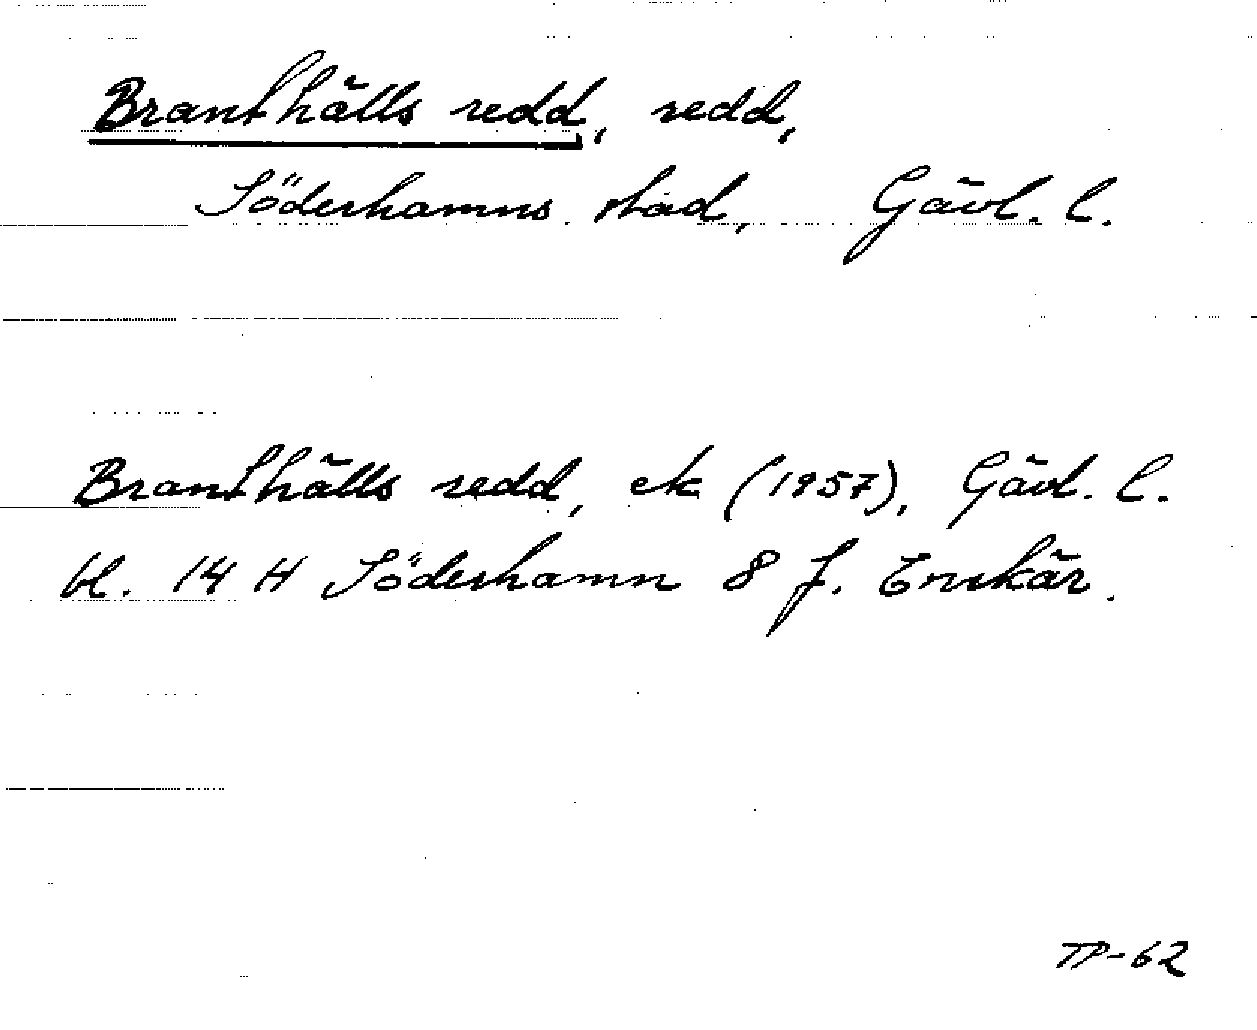 Branthälls redd, redd,
Söderhamns stad, Gävl. l.
Branthälls redd, ek (1957), Gävl. l.
bl. 14 H Söderhamn 8 f. Enskär.
TP-62